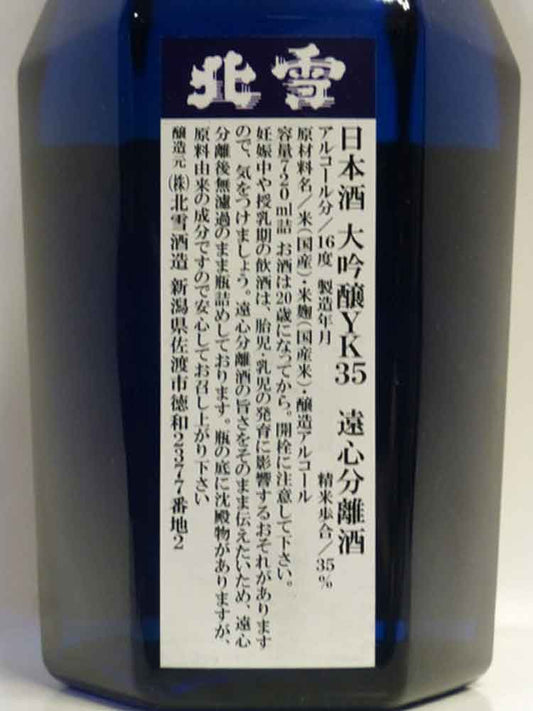 北雪
日本酒 大吟醸YK35 遠心分離酒
アルコール分/16度 製造年月 精米歩合/35%
原材料名/米(国産)・米麹(国産米)・醸造アルコール
容量720ml詰 お酒は20歳になってから。開栓に注意して下さい。
妊娠中や授乳期の飲酒は、胎児・乳児の発育に影響するおそれがあります
ので、気をつけましょう。遠心分離酒の旨さをそのまま伝えたいため、遠心
分離後無濾過のまま瓶詰めしております。瓶の底に沈殿物がありますが、
原料由来の成分ですので安心してお召し上がり下さい
醸造元 (株)北雪酒造 新潟県佐渡市徳和2377番地2